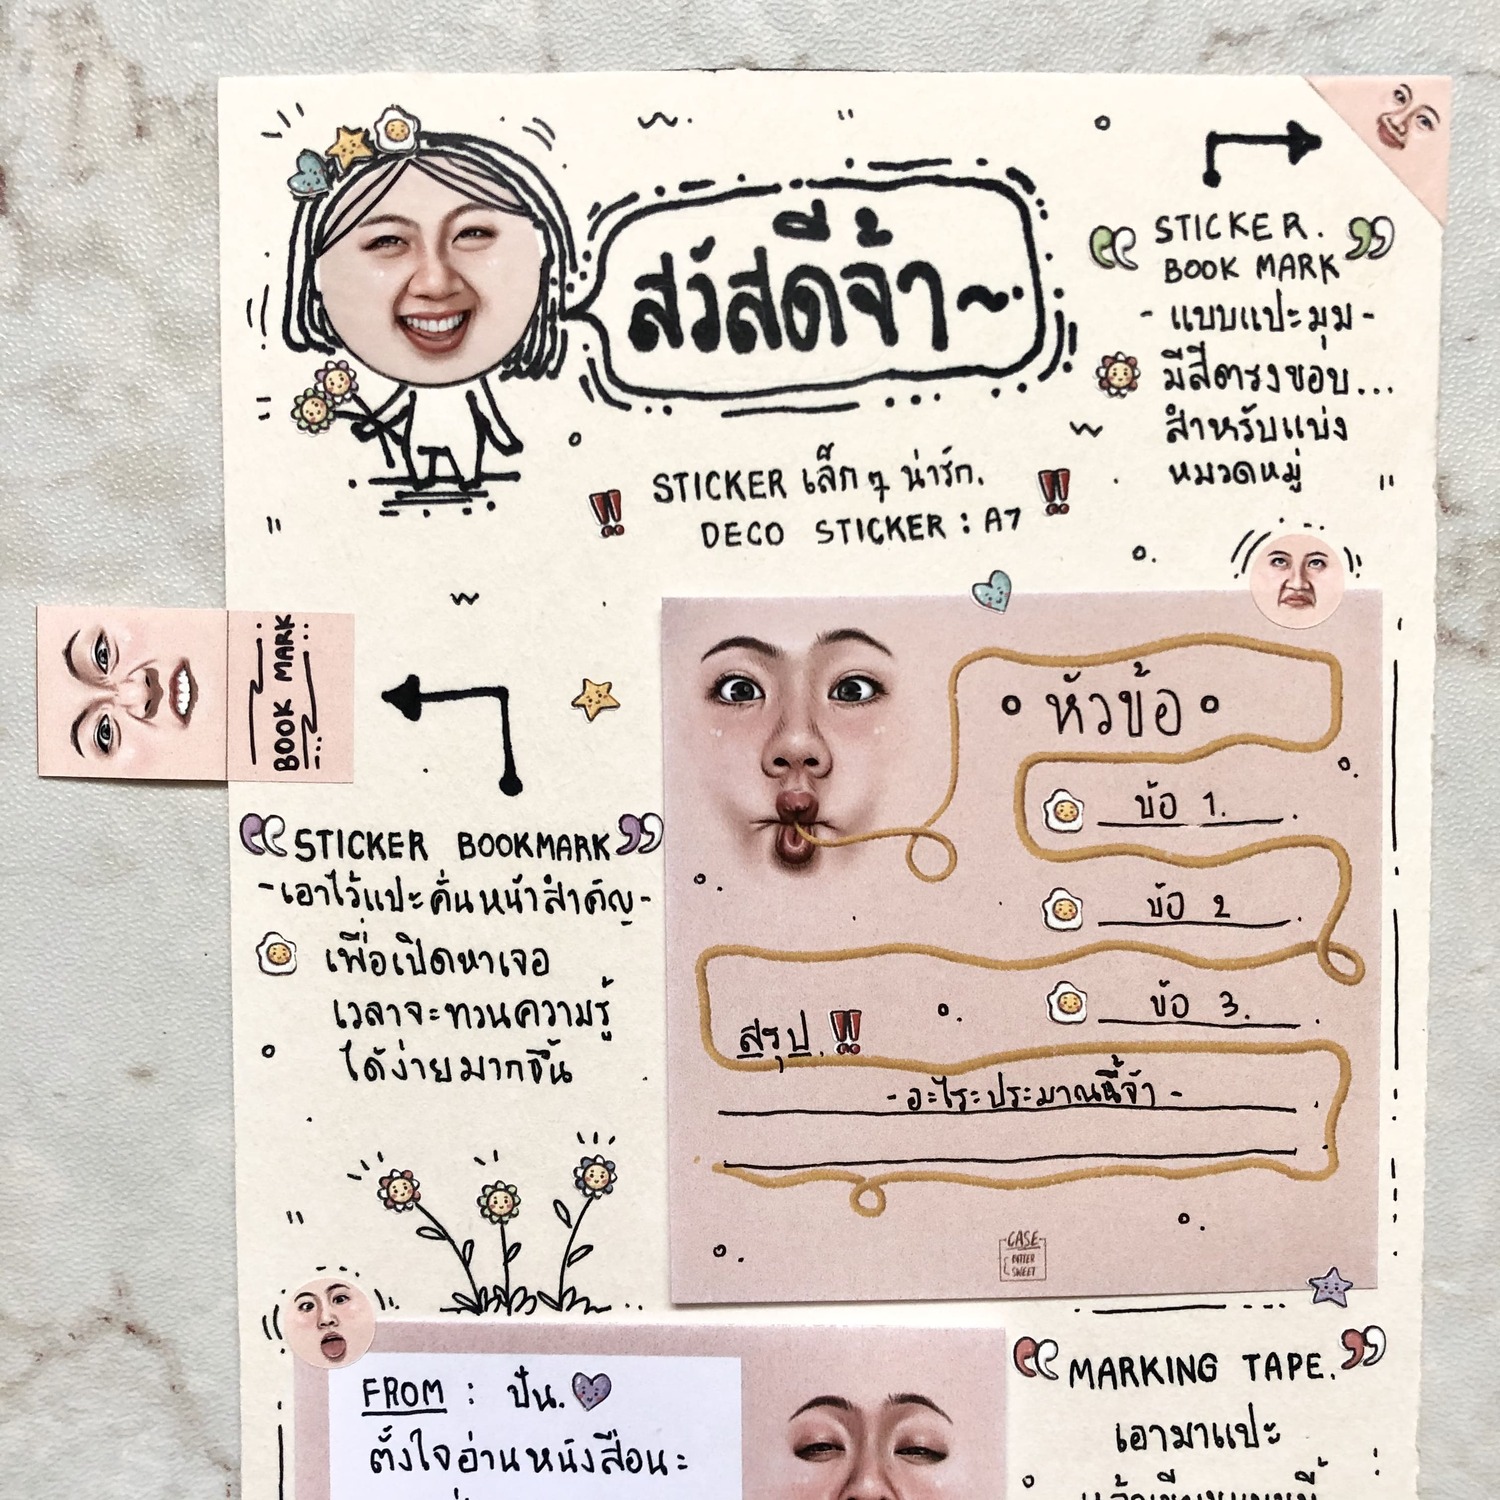 สวัสดีจ้า~
STICKER.
BOOK MARK
- แบบแปะมุม -
มีสีตรงขอบ...
สำหรับแบ่ง
หมวดหมู่
STICKER เล็ก ๆ น่ารัก.
DECO STICKER : A7
BOOK MARK
STICKER BOOKMARK
- เอาไว้แปะคั่นหน้าสำคัญ -
เพื่อเปิดหาเจอ
เวลาจะทวนความรู้
ได้ง่ายมากขึ้น
หัวข้อ
ข้อ 1.
ข้อ 2
ข้อ 3.
สรุป
- อะไระประมาณนี้จ้า -
CASE
BITTER
SWEET
FROM : ปั๋น.
ตั้งใจอ่านหนังสือนะ
MARKING TAPE.
เอามาแปะ